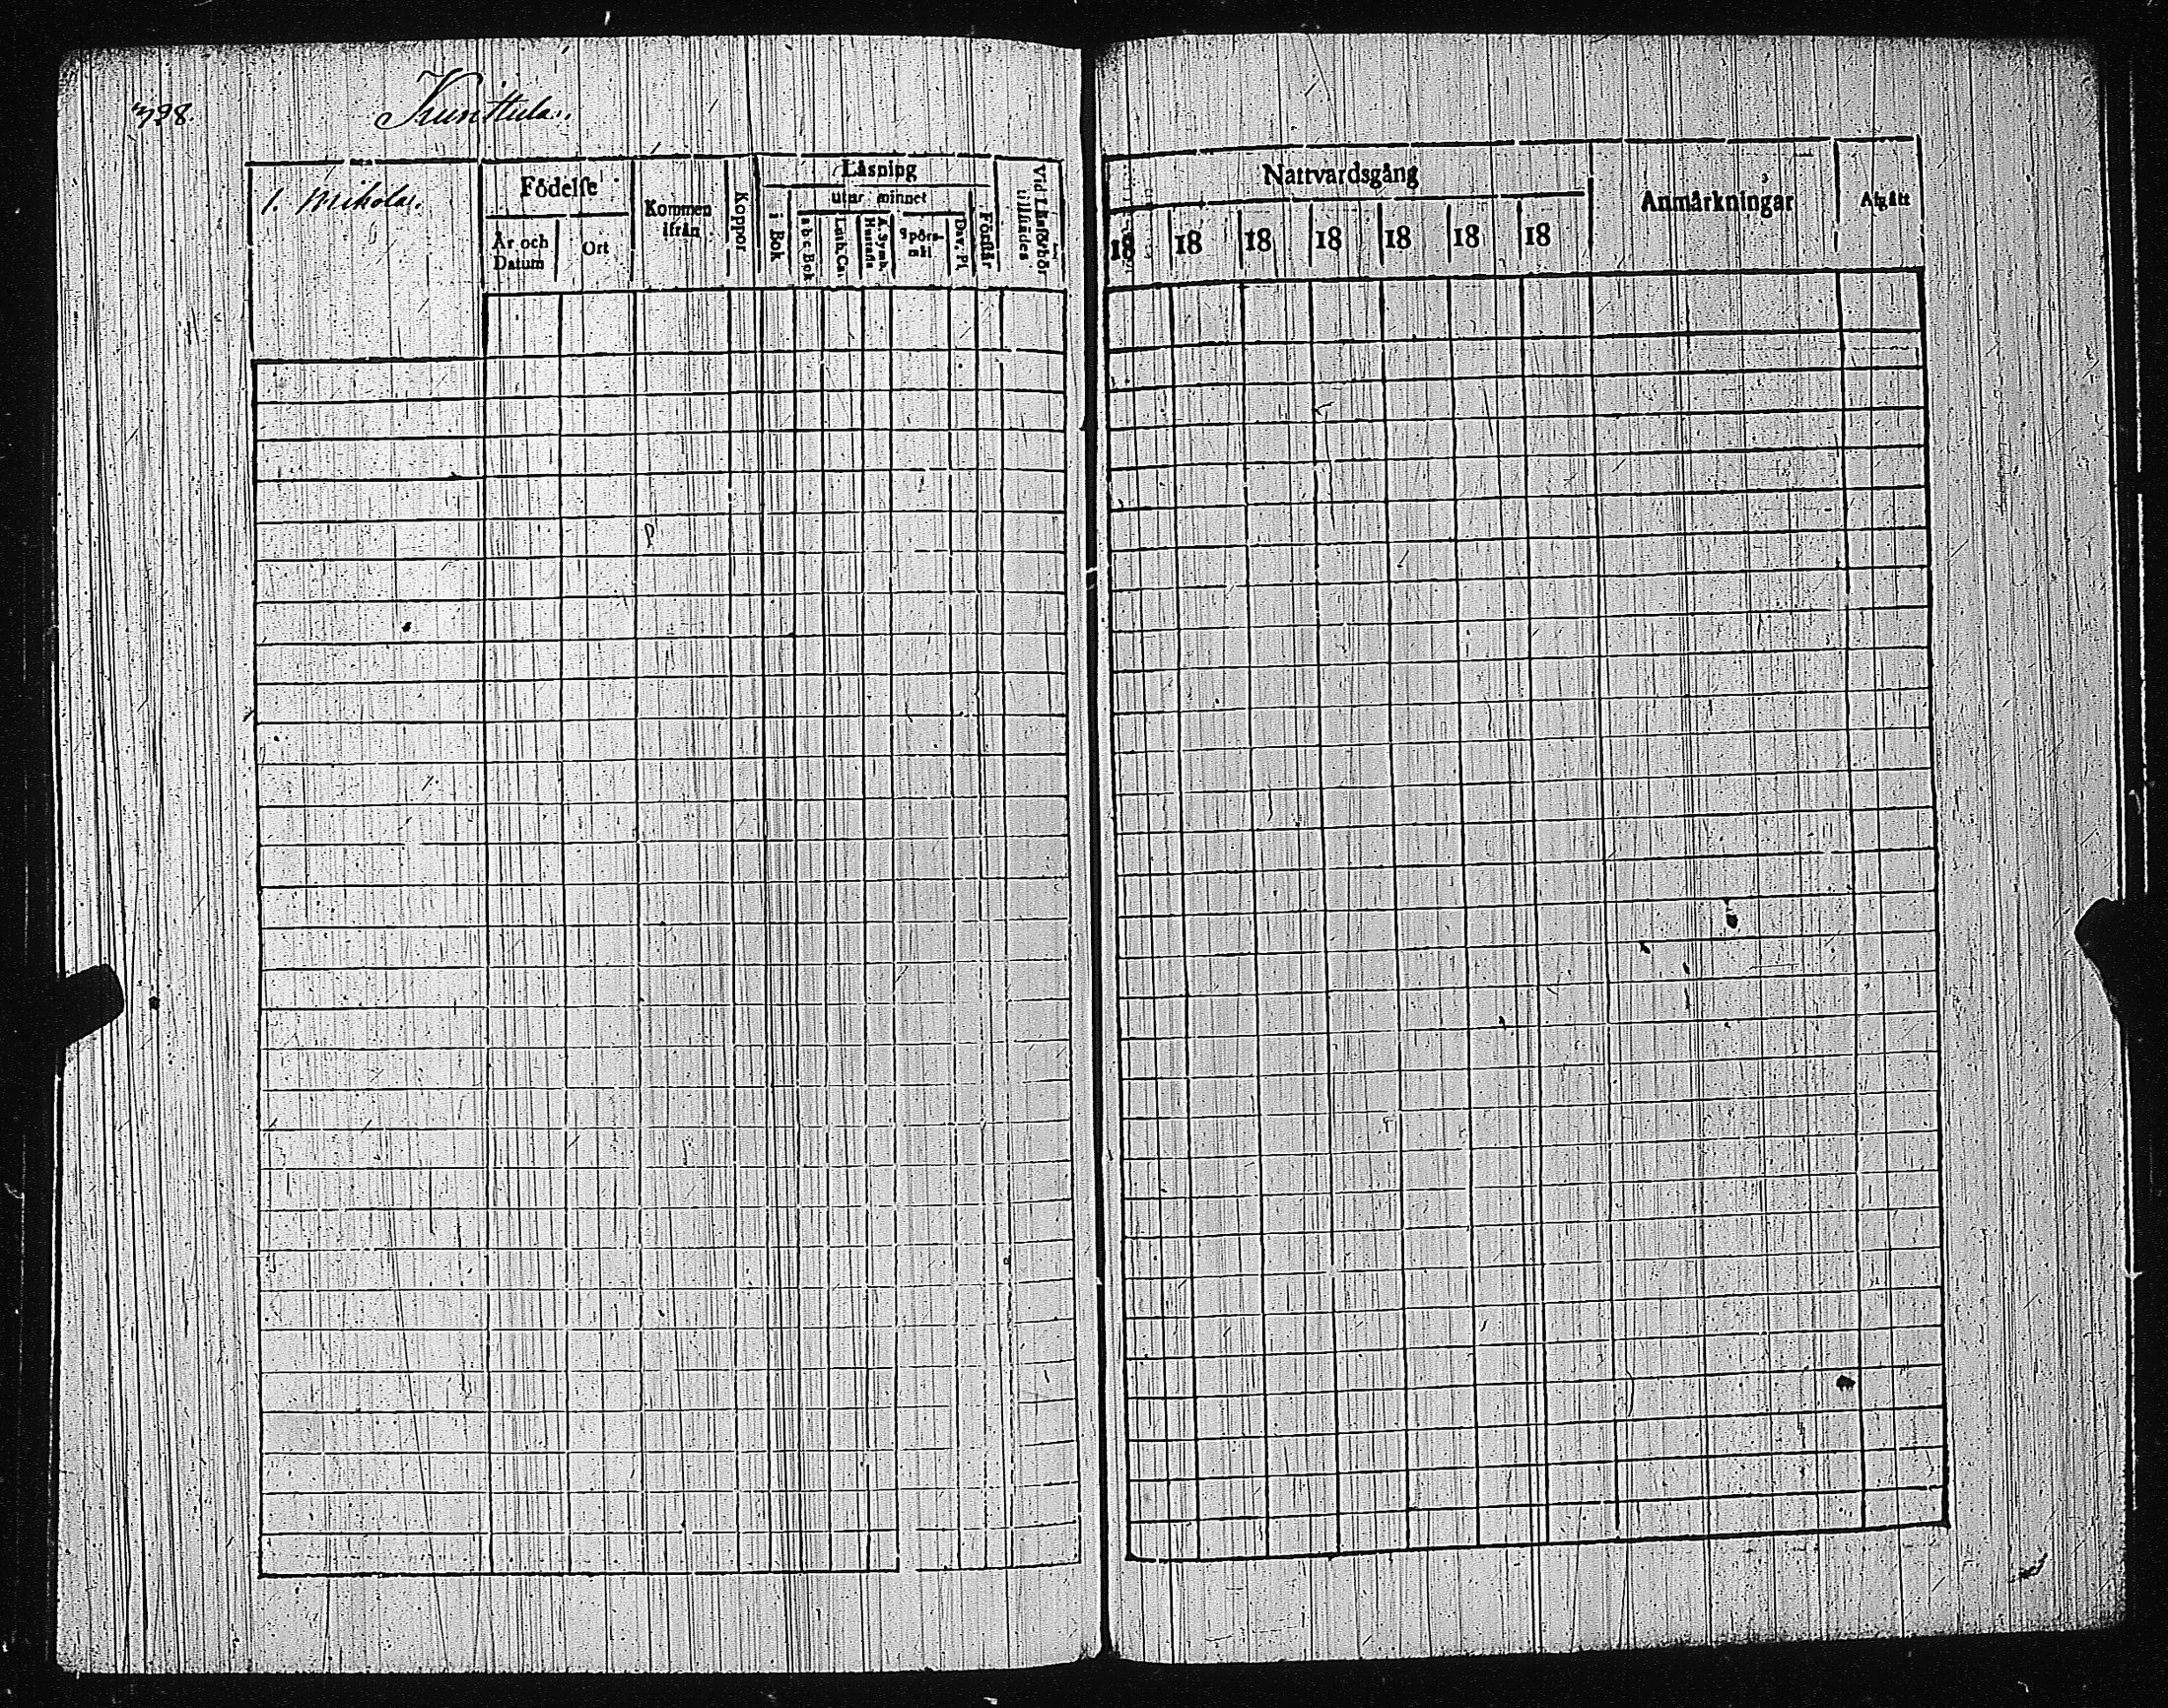 328.
Kunttula.
1. Mikola.
Födelse
År och Datum
Ort
Kommen ifrån
Koppor
Läsning
i Bok
utur minnet
a b c Bok
Luth. Cat.
A. Symb. Hustafla
Spörsmål
Dav. Ps.
Förstår
Vid Läsförhör tillstädes
Nattvardsgång
18 18 18 18 18 18 18
Anmärkningar
Afgått